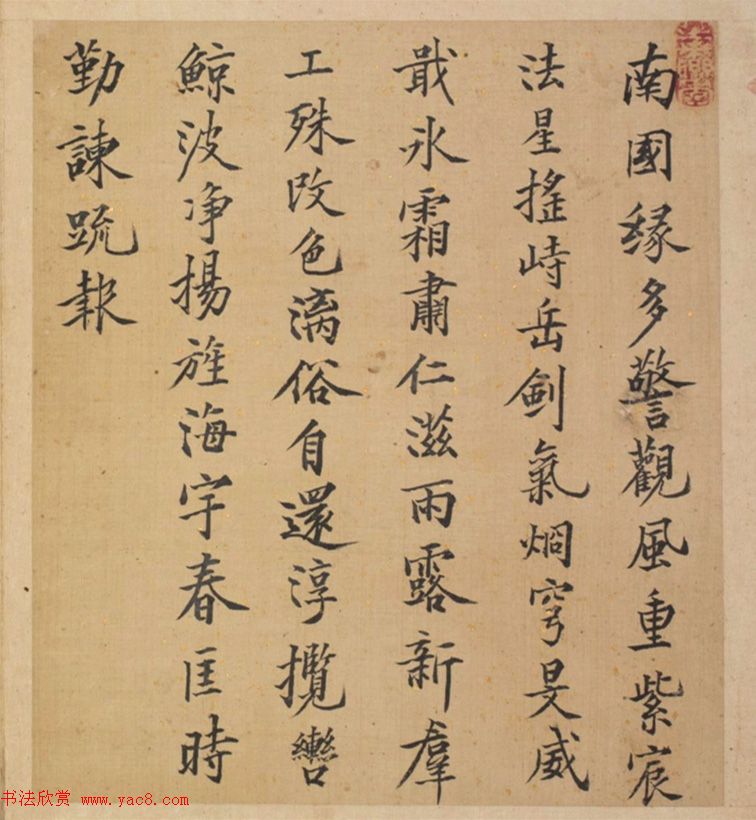 南國緣多警觀風重紫宸
法星搖峙岳劍氣烱穹旻威
戢氷霜肅仁滋雨露新羣
工殊改色漓俗自還淳攬轡
鯨波净揚旌海宇春匡時
勤諫疏報
书法欣赏 www.yac8.com